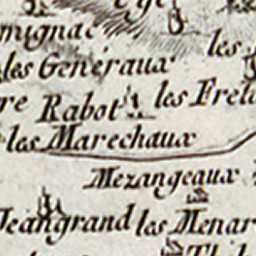 mignac les
les Généraux
Rabot les Frela
les Marechaux
Mezangeaux
Jeangrand les Menar